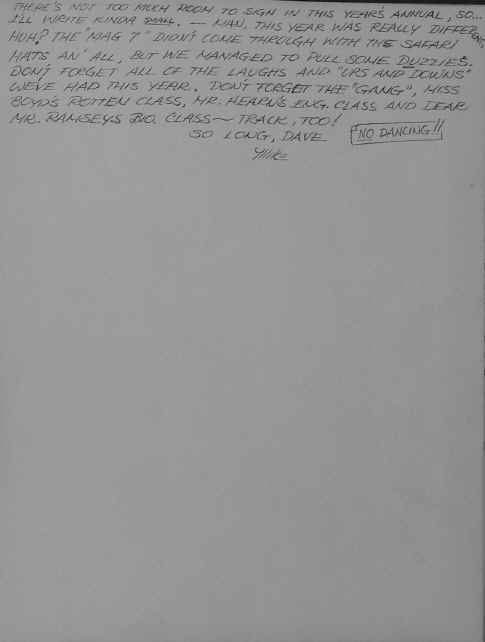 THERE'S NOT TOO MUCH ROOM TO SIGN IN THIS YEAR'S ANNUAL, SO...
I'LL WRITE KINDA SMALL. — MAN, THIS YEAR WAS REALLY DIFFERENT,
HUH? THE "MAG 7" DIDN'T COME THROUGH WITH THE SAFARI
HATS AN' ALL, BUT WE MANAGED TO PULL SOME DUZZIES.
DON'T FORGET ALL OF THE LAUGHS AND "UPS AND DOWNS"
WE'VE HAD THIS YEAR. DON'T FORGET THE "GANG", MISS
BOYD'S ROTTEN CLASS, MR. HEARN'S ENG. CLASS AND DEAR
MR. RAMSEY'S BIO. CLASS~ TRACK, TOO!
SO LONG, DAVE NO DANCING!!
Mike